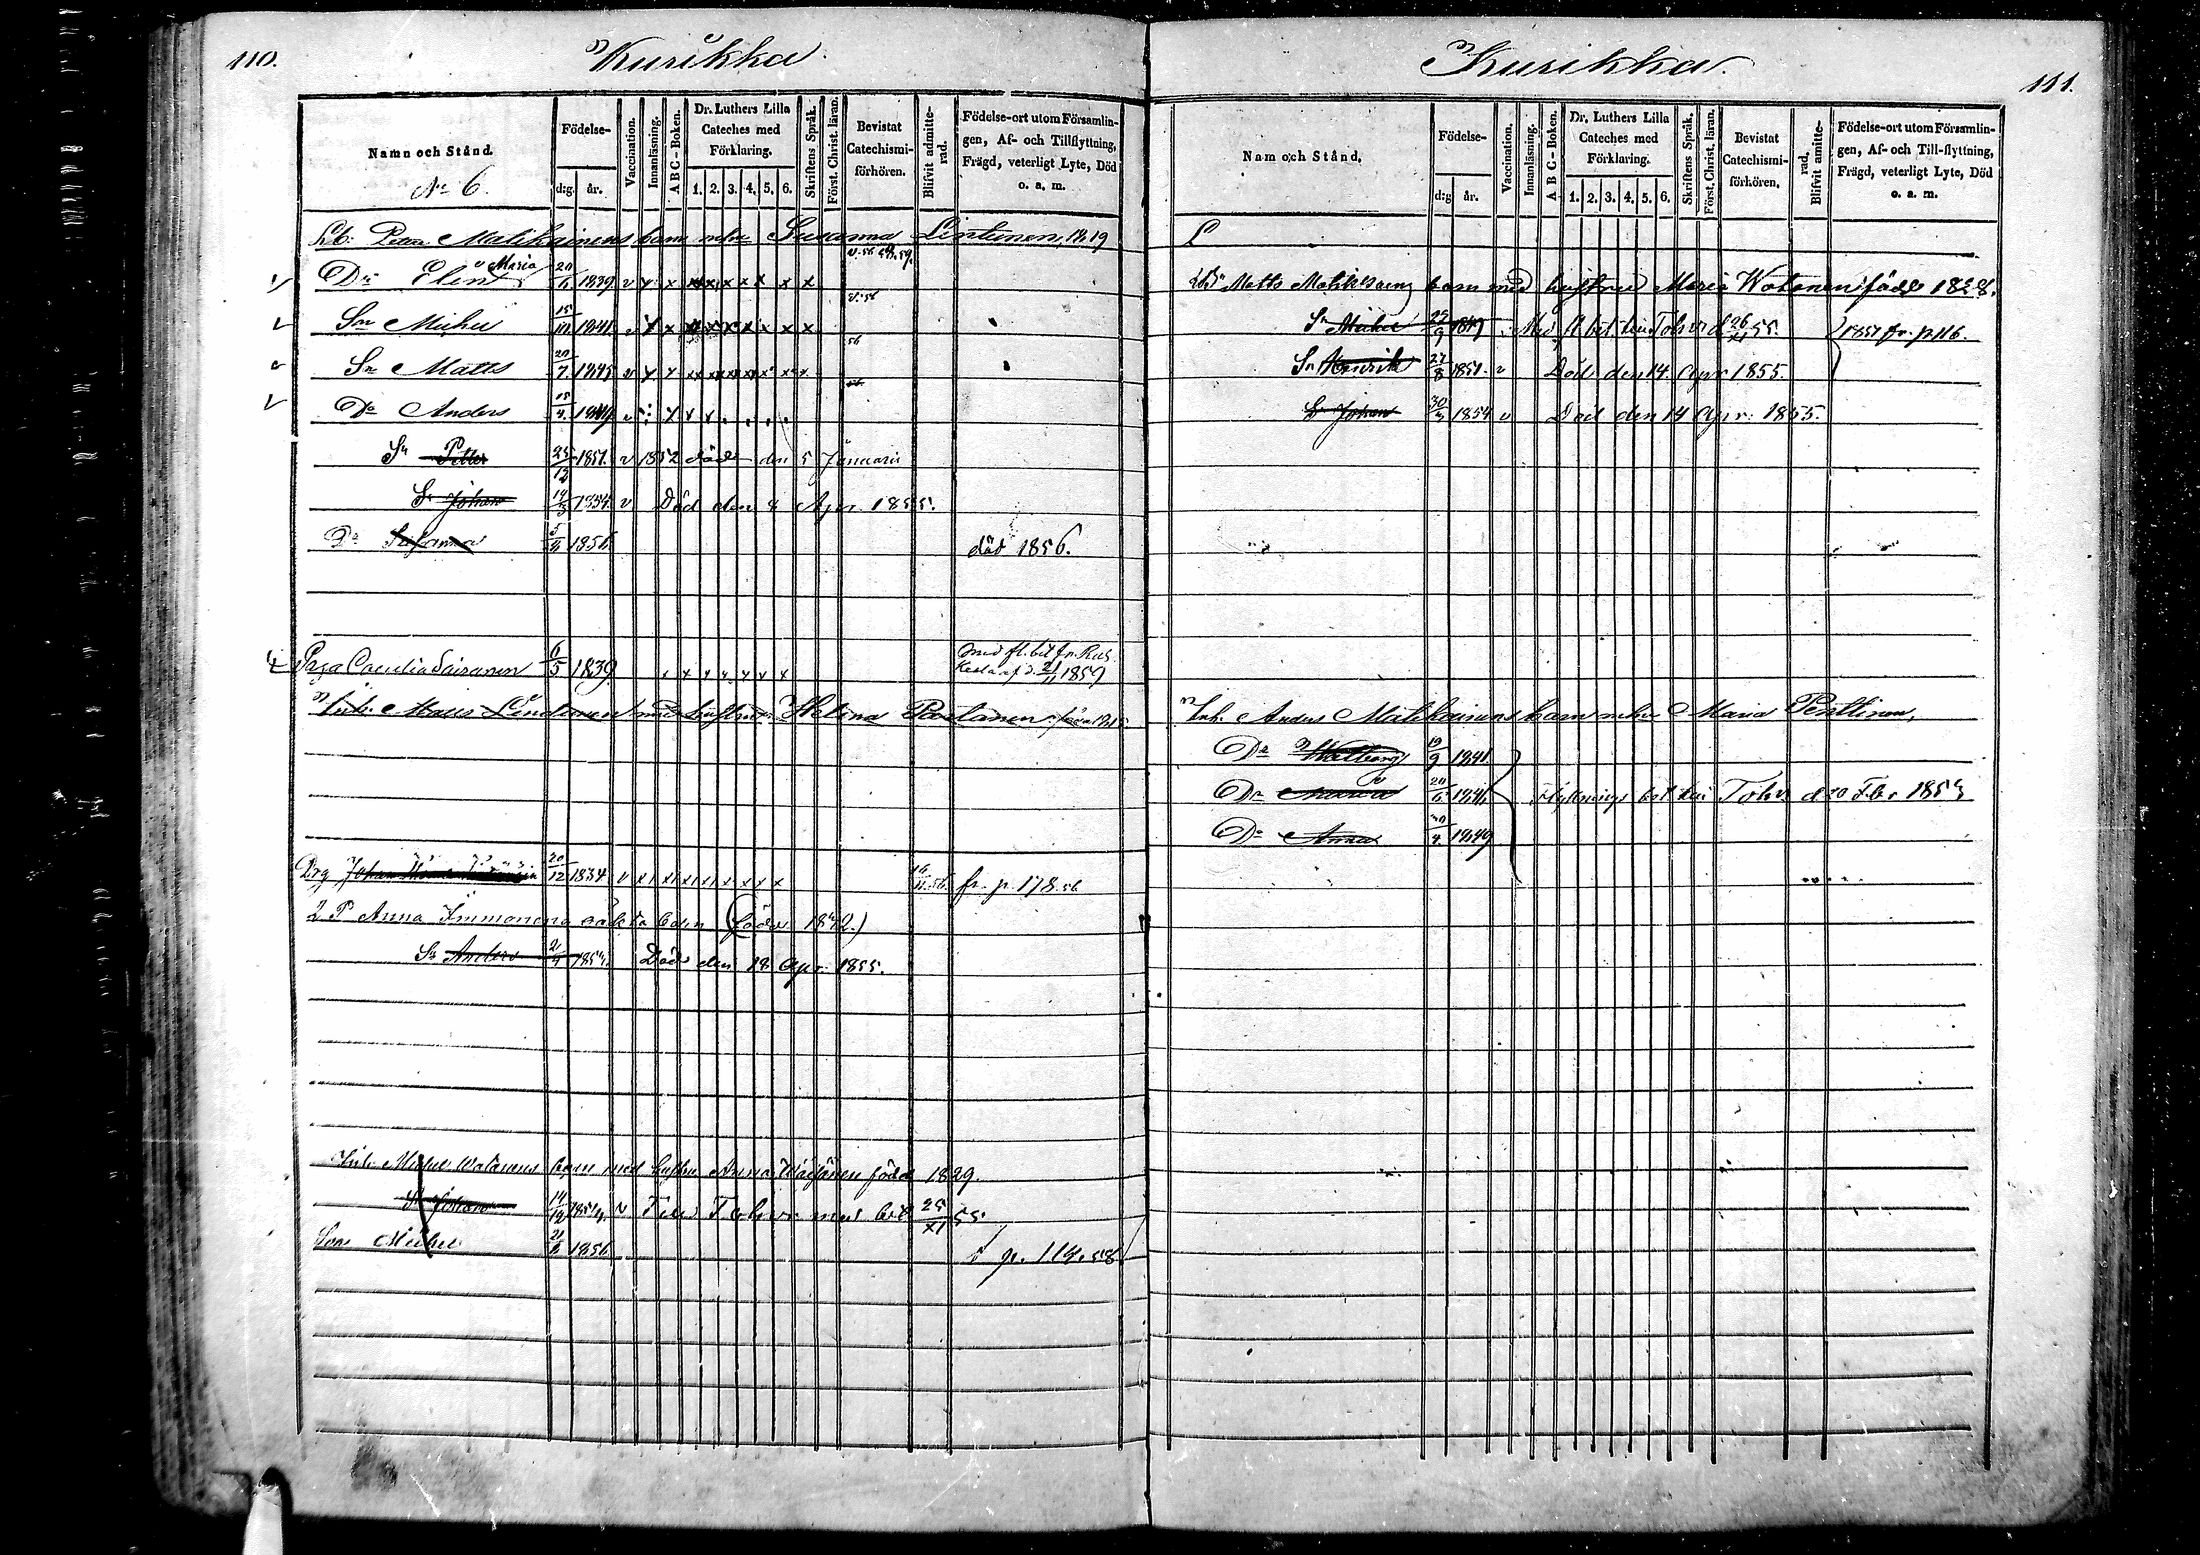 110.
Kurikka.
Namn och Stånd.
No 6.
Födelse-
d:g. år.
Vaccination.
Innanläsning.
A B C - Boken.
Dr. Luthers Lilla Cateches med Förklaring.
1. 2. 3. 4. 5. 6.
Skriftens Språk.
Först. Christ. läran.
Bevistat Catechismi-förhören.
Blifvit admitte-rad.
Födelse-ort utom Församlin-gen, Af- och Tillflyttning, Frägd, veterligt Lyte, Död o. a. m.
Petter Matikainens barn m hu Susanna Lintunen, 1819
Dr Elin Maria 20/6 1839 v x x x x x x x x x x
Sn Michel 15/10 1841
Sn Matts 20/7 1845
Do Anders 15/4
Sn Petter 25/12 1851. v 1852 död den 5 Januarii
Sn Johan 19/3 1854 v Död den 8 Apr. 1855.
Dr Susanna 5/4 1856 död 1856.
Piga Caecilia Sairanen 6/5 1839 med fl. bet. fr. Rus-keala af d. 21/11 1859
Inh. Matts Lintunen med hustru Helena Partanen
Drg Johan 20/12 1834 v fr. p. 178. 56
Anna Immonens oäkta barn (född
Sn Anders 2/4 1854. Död den 18 Apr 1855.
Inh. Michel Watanens barn med hustru Anna Wäisänen född 1829.
Sn Johan 14/12 1854. v Till Tohm. med bet 25/XI 55
Son Michel 21/2 1856 p. 114. 58
Kurikka.
111.
Namn och Stånd.
Födelse-
d:g år.
Vaccination.
Innanläsning.
A B C - Boken.
Dr. Luthers Lilla Cateches med Förklaring.
1. 2. 3. 4. 5. 6.
Skriftens Språk.
Först. Christ. läran.
Bevistat Catechismi-förhören.
Blifvit amitte-rad.
Födelse-ort utom Församlin-gen, Af- och Till-flyttning, Frägd, veterligt Lyte, Död o. a. m.
Matts Matikainens barn med hustru Maria Watanen född 1828.
Sn Michel 29/9 1849 Med fl. bet. till Tohm d 26/XI 55. 1857 fr. p. 116.
Sn Henrik 27/8 1851. v Död den 14. Apr 1855.
Sn Johan 30/3 1854 v Död den 14 Apr. 1855.
Inh. Anders Matikainens barn m hu Maria Penttinen,
Dr Walborg 19/9 1841
Dr Maria 20/6 1846 Flyttnings bet till Tohm d 20 Febr
Dr Anna 30/4 1849